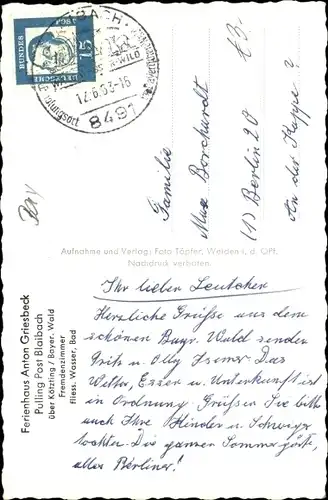 BLAIBACH
DEUTSCHE
BUNDES
POST
15
WILD
17.6.63-16
8491
Familie
Max Borchardt
(1) Berlin 20
An der Kappe
Aufnahme und Verlag: Foto Töpfer, Weiden i. d. OPf.
Nachdruck verboten.
Ferienhaus Anton Griesbeck
Pulling Post Blaibach
über Kötzting / Bayer. Wald
Fremdenzimmer
fliess. Wasser, Bad
Ihr lieben Leutchen
Herzliche Grüße aus dem
schönen Bayr. Wald senden
Fritz u. Olly Isemer Das
Wetter, Essen u. Unterkunft ist
in Ordnung. Grüßen Sie bitte
auch Ihre Kinder u. Schwieger
tochter. Die ganzen Sommergäste,
alles Berliner!